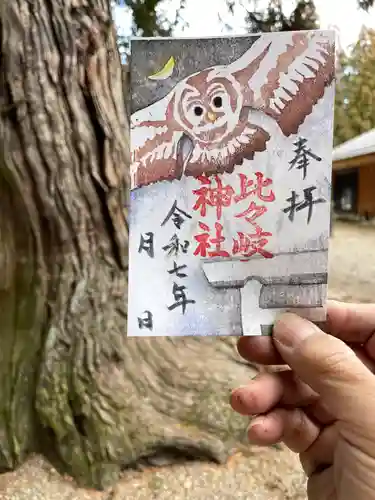 奉拝
比々岐
神社
令和七年
月
日